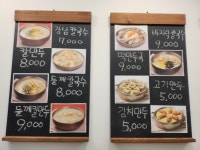 강남칼국수
7,000
칼만두
8,000
들깨칼국수
8,000
들깨칼만두
9,000
바지락칼국수
9,000
떡만두국
9,000
고기만두
5,000
김치만두
5,000